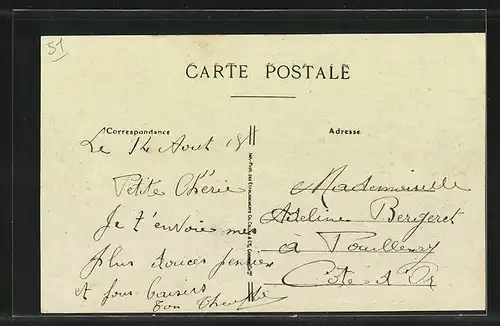 51
CARTE POSTALE
Correspondance
Adresse
Le 14 Août 1911
Petite Chérie
Je t'envoie mes
plus douces pensées
et fous baisers
ton
Mademoiselle
Adeline Bergeret
à Pouillenay
Côte d'Or